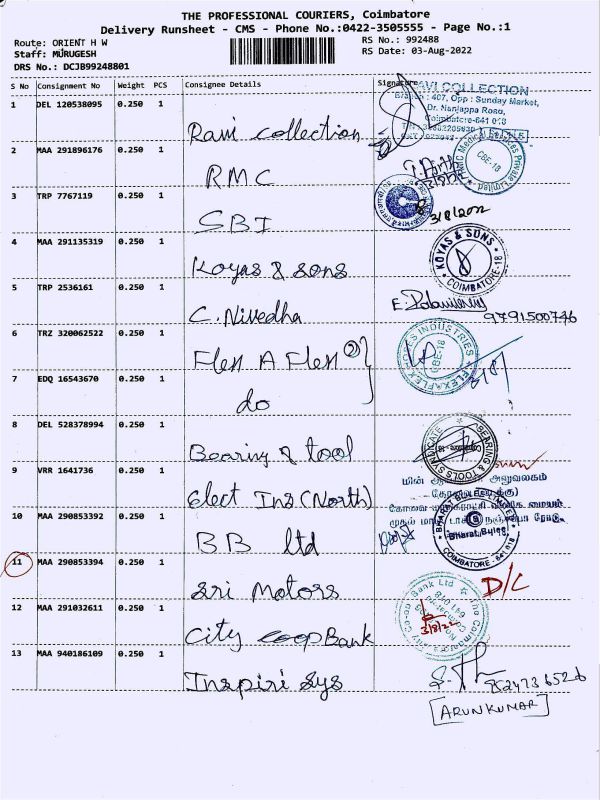 THE PROFESSIONAL COURIERS, Coimbatore
Delivery Runsheet - CMS - Phone No.:0422-3505555 - Page No.:1
Route: ORIENT H W
RS No.: 992488
Staff: MURUGESH
RS Date: 03-Aug-2022
DRS No.: DCJB99248801
S No Consignment No Weight PCS Consignee Details Signature
1 DEL 120538095 0.250 1 Ravi collection
RAVI COLLECTION
Branch : 407, Opp : Sunday Market,
Dr. Nanjappa Road,
Coimbatore-641 018
2 MAA 291896176 0.250 1 RMC
RMC Medical Services Private Limited
CBE-18
3/8/22
3 TRP 7767119 0.250 1 SBI
3/8/2022
4 MAA 291135319 0.250 1 Koyas & sons
KOYAS & SONS
COIMBATORE-18
5 TRP 2536161 0.250 1 C. Nivedha
9791500746
6 TRZ 320062522 0.250 1 Flex A Flex (2)
FLEXAFLEX INDUSTRIES
CBE-18
7 EDQ 16543670 0.250 1 do
3/8/
8 DEL 528378994 0.250 1 Bearing & tool
BEARING & TOOLS SYNDICATE
9 VRR 1641736 0.250 1 Elect Ins (North)
அலுவலகம்
10 MAA 290853392 0.250 1 BB ltd
Bharat Bijlee
COIMBATORE - 641 018
11 MAA 290853394 0.250 1 Sri Motors
D/C
12 MAA 291032611 0.250 1 City Coop Bank
3/8/22
13 MAA 940186109 0.250 1 Inspiri Sys
8247376526
ARUNKUMAR